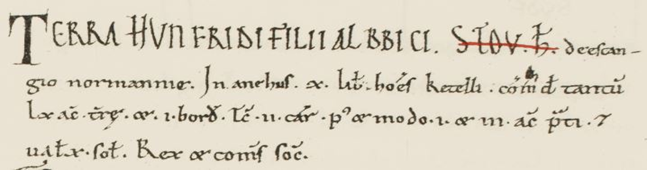 TERRA HUNFRIDI FILII ALBBICI. STOU. H̄. de escan-
gio normannie. In anehus. x. lib̄. ho͞es ketelli. com̄d̄ tantū
lx ac̄. tr̄e. 7 . i. bord̄. Tc̄. ii car̄. p' 7 modo. i. 7 iii. ac̄ p̄ti. 7
ual̄. x. sol̄. Rex 7 com̄s soc̄.